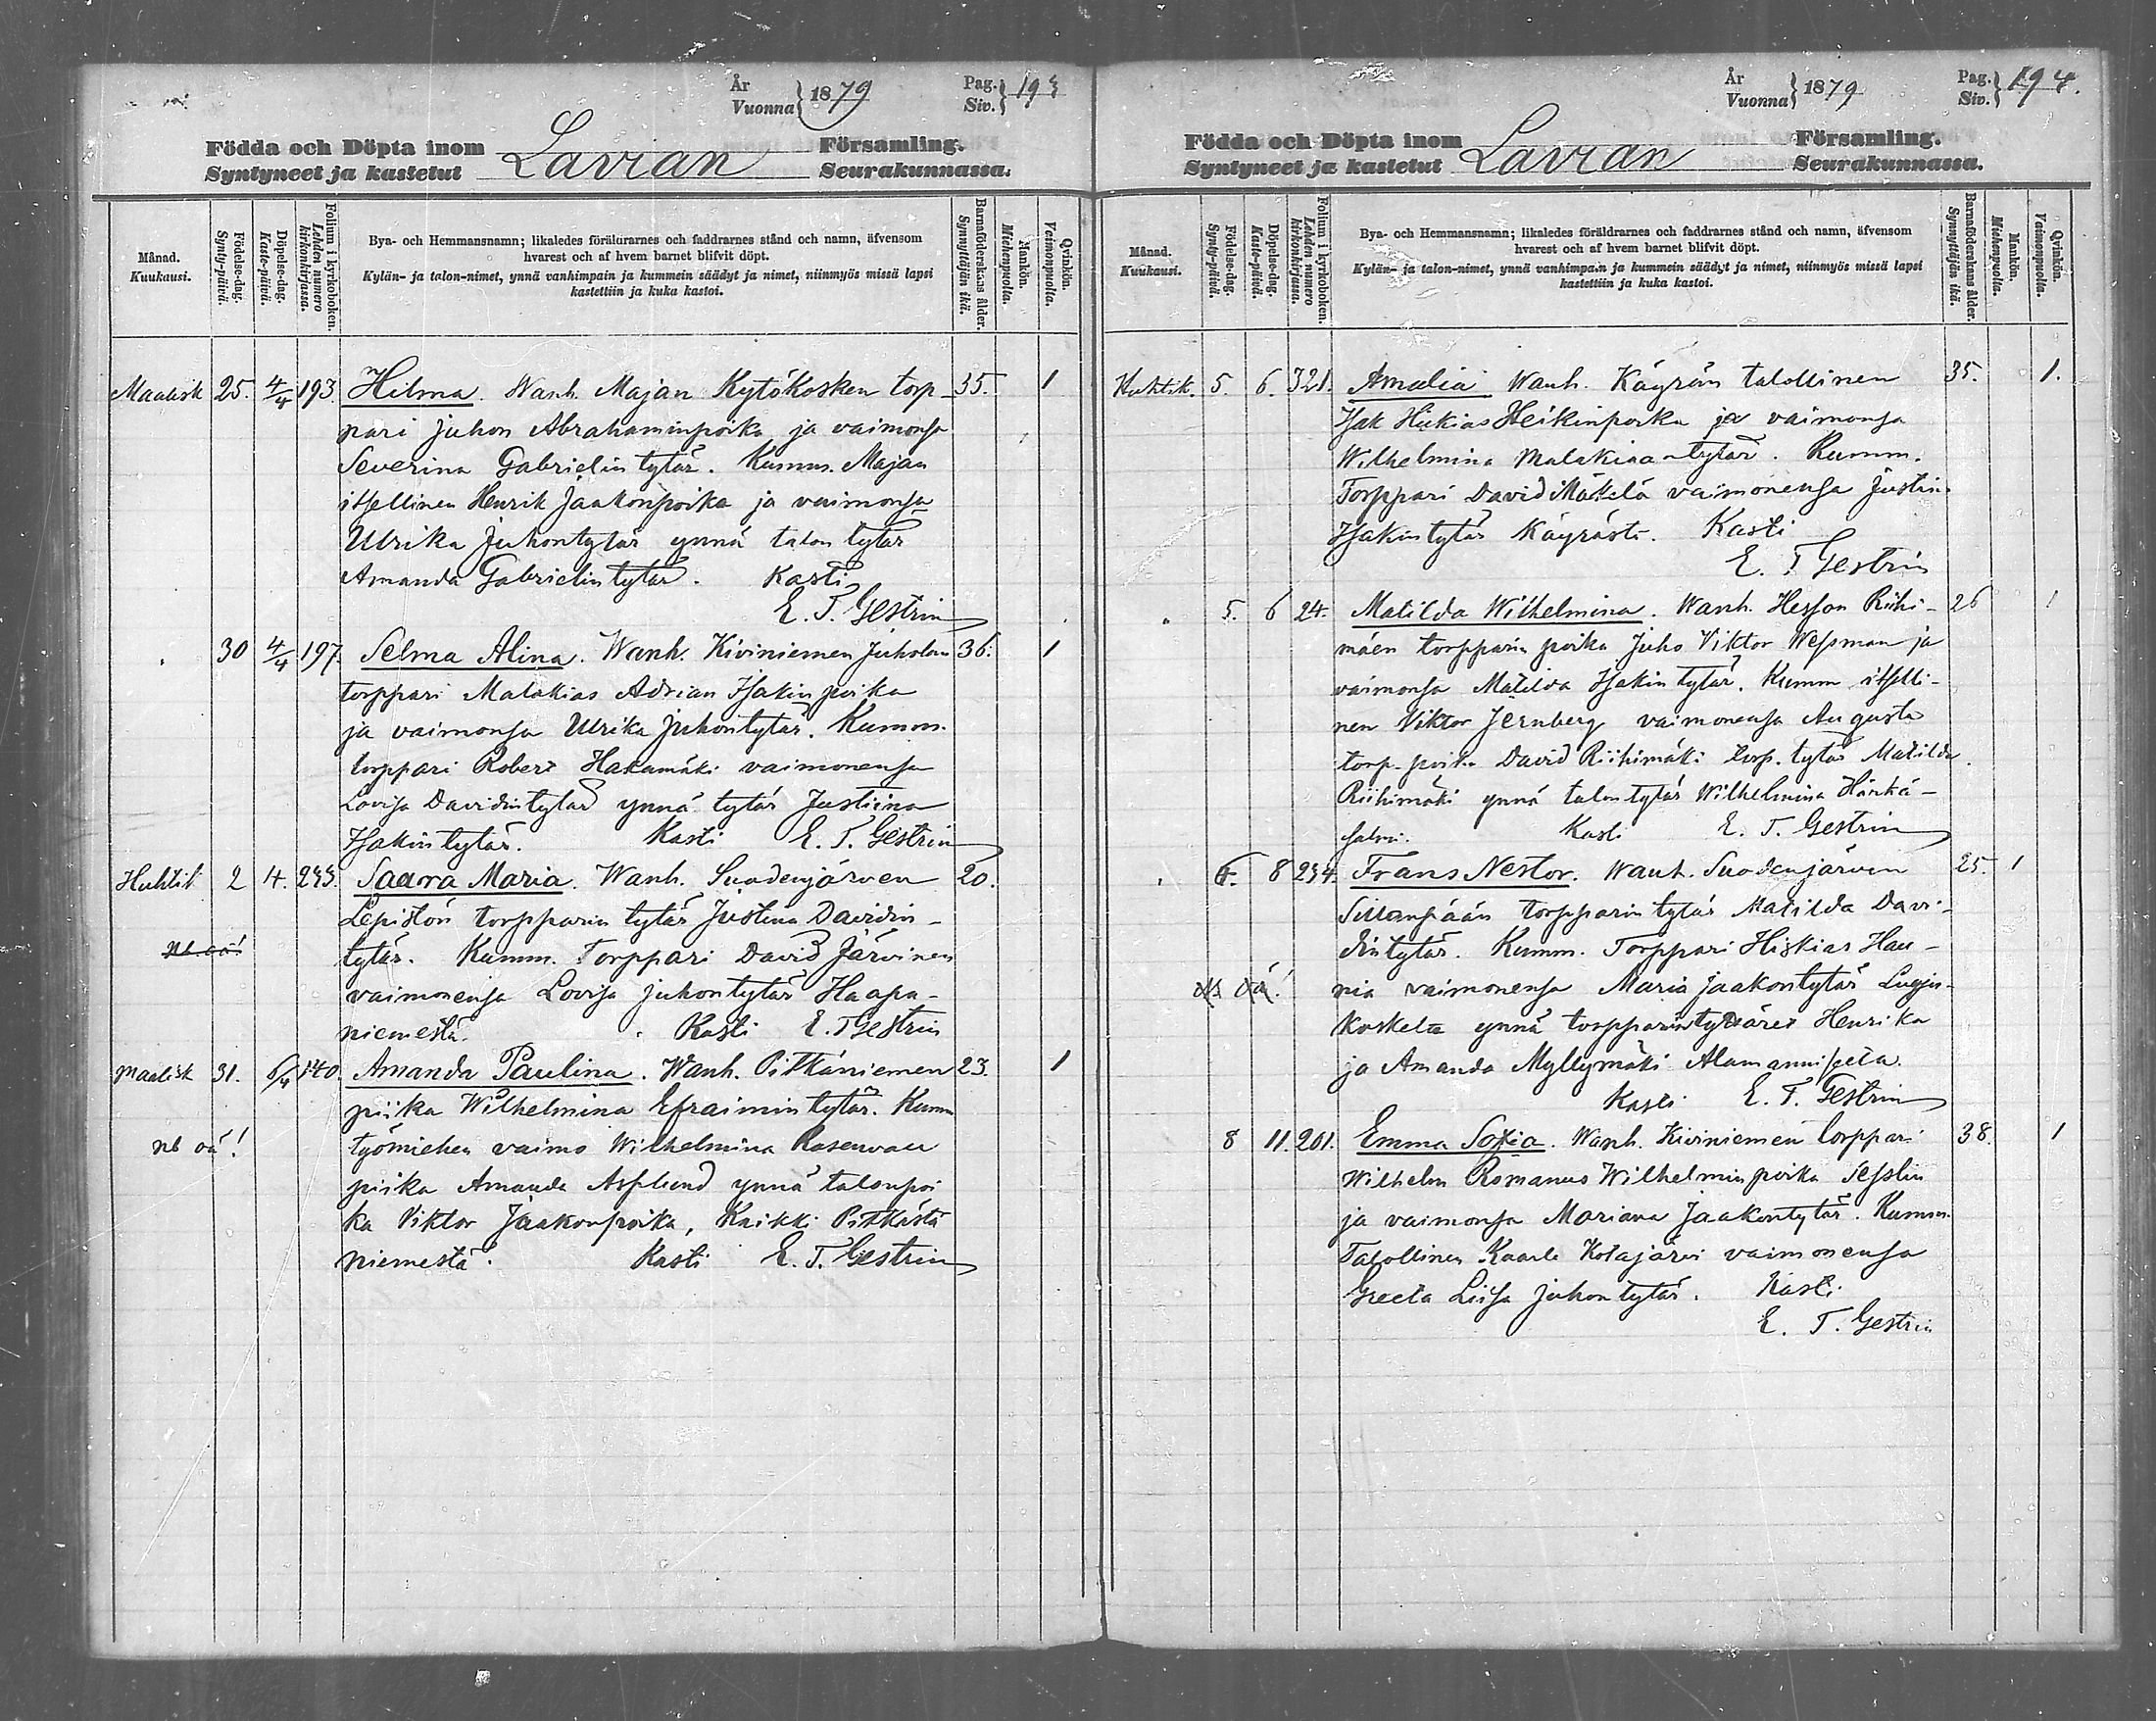 År
Vuonna } 1879
Pag.
Siv. } 193
Födda och Döpta inom Lavian Församling.
Syntyneet ja kastetut Seurakunnassa.
Månad.
Kuukausi.
Födelse-dag.
Synty-päivä.
Döpelse-dag.
Kaste-päivä.
Folium i kyrkoboken.
Lehden numero kirkonkirjassa.
Bya- och Hemmansnamn; likaledes föräldrarnes och faddrarnes stånd och namn, äfvensom
hvarest och af hvem barnet blifvit döpt.
Kylän- ja talon-nimet, ynnä vanhimpain ja kummein säädyt ja nimet, niinmyös missä lapsi
kastettiin ja kuka kastoi.
Barnaföderskans ålder.
Synnyttäjän ikä.
Mankön.
Miehenpuolta.
Qvinkön.
Vaimonpuolta.
Maalisk 25. 4/4 193. Hilma. Wanh. Majan Kytökosken torp- 35. 1
pari Juhon Abrahaminpoika ja vaimonsa
Severina Gabrielin tytär. Kumm. Majan
itsellinen Henrik Jaakonpoika ja vaimonsa
Ulrika Juhontytär ynnä talon tytär
Amanda Gabrielin tytär. Kasti
E. T. Gestrin
30 4/4 197. Selma Alina. Wanh. Kiviniemen Juholan 36. 1
torppari Malakias Adrian Isakinpoika
ja vaimonsa Ulrika Juhontytär. Kumm.
torppari Robert Hakamäki vaimonensa
Lovisa Davidintytär ynnä tytär Justiina
Isakintytär. Kasti E. T. Gestrin
Huhtik 2 4. 233. Saara Maria. Wanh. Suodenjärven 20.
Lepistön torpparin tytär Justina Davidin-
tytär. Kumm. Torppari David Järvinen
nb oä!
vaimonensa Lovisa Juhontytär Haapa-
niemestä. Kasti E. T Gestrin
Maalisk 31. 6/4 140. Amanda Paulina. Wanh. Pitkäniemen 23. 1
piika Wilhelmina Efraimin tytär. Kumm
nb oä! työmiehen vaimo Wilhelmina Rosenvall
piika Amanda Asplund ynnä talonpoi
ka Viktor Jaakonpoika, Kaikki Pitkästä
niemestä. Kasti E. T. Gestrin
År
Vuonna } 1879
Pag.
Siv. } 194.
Födda och Döpta inom Lavian Församling.
Syntyneet ja kastetut Seurakunnassa.
Månad.
Kuukausi.
Födelse-dag.
Synty-päivä.
Döpelse-dag.
Kaste-päivä.
Folium i kyrkoboken.
Lehden numero kirkonkirjassa.
Bya- och Hemmansnamn; likaledes föräldrarnes och faddrarnes stånd och namn, äfvensom
hvarest och af hvem barnet blifvit döpt.
Kylän- ja talon-nimet, ynnä vanhimpain ja kummein säädyt ja nimet, niinmyös missä lapsi
kastettiin ja kuka kastoi.
Barnaföderskans ålder.
Synnyttäjän ikä.
Mankön.
Miehenpuolta.
Qvinkön.
Vaimonpuolta.
Huhtik. 5. 6. 321. Amalia Wanh. Käyrän talollinen 35. 1.
Isak Hiskias Heikinpoika ja vaimonsa
Wilhelmina Malakiaantytär. Kumm.
Torppari David Mäkelä vaimonensa Justin
Isakin tytär Käyrästä. Kasti
E. T Gestrin
5. 6 24. Matilda Wilhelmina. Wanh. Hesson Riihi- 26 1
mäen torpparin poika Juho Viktor Wessman ja
vaimonsa Matilda Isakin tytär. Kumm itselli-
nen Viktor Jernberg vaimonensa Augusta
torp. poika David Riihimäki torp. tytär Matilda
Riihimäki ynnä talontytär Wilhelmina Härkä-
salmi. Kasti E. T. Gestrin
6. 8 234. Frans Nestor. Wanh. Suodenjärven 25. 1
Sillanpään torpparin tytär Matilda Davi-
dintytär. Kumm. Torppari Hiskias Hau-
nia vaimonensa Maria Jaakontytär
Koskelta ynnä torpparintyttäret Henrika
ja Amanda Myllymäki
Kasti E. T. Gestrin
8 11. 201. Emma Sofia. Wanh. Kiviniemen torppari 38. 1
Wilhelm Romanus Wilhelminpoika Sesslin
ja vaimonsa Mariana Jaakontytär. Kumm.
Talollinen Kaarle Kotajärvi vaimonensa
Greeta Liisa Juhontytär. Kasti
E. T. Gestrin